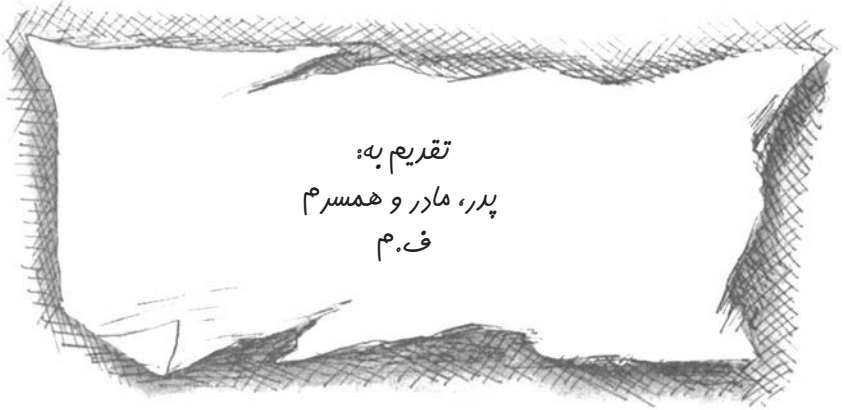 تقدیم به:
پدر، مادر و همسرم
ف.م